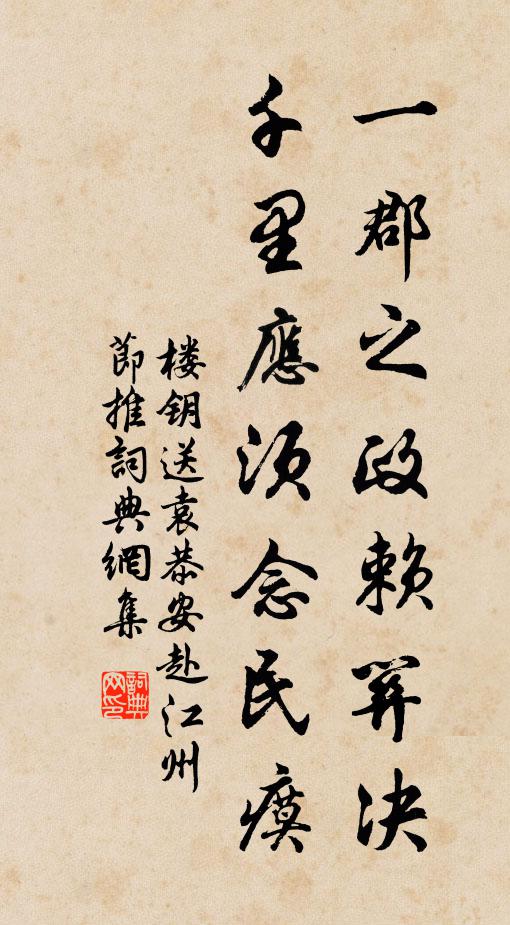 一郡之政賴關决
千里應須念民瘼
楼钥送袁恭安赴江州
節推詞典網集
詞典网印